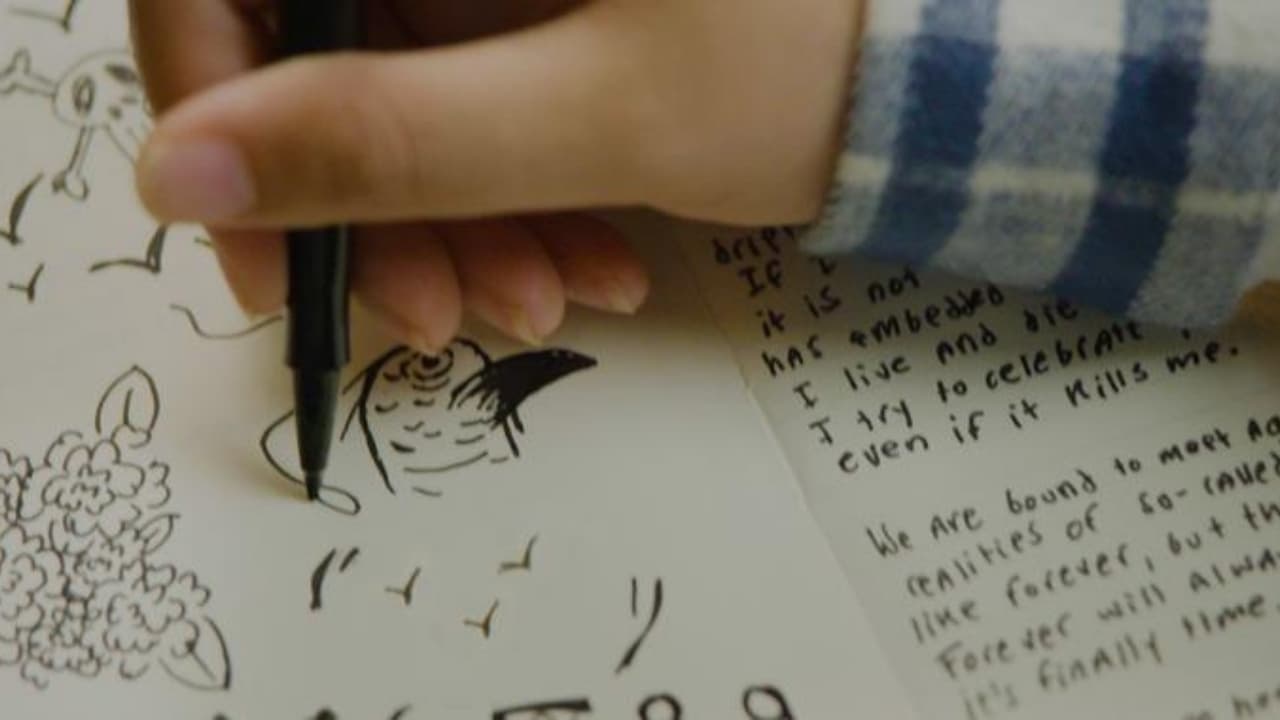 If I
it is not
has embedded
I live and die
I try to celebrate
even if it kills me.
We are bound to meet
realities of so-called
like forever, but
Forever will
it's finally time.